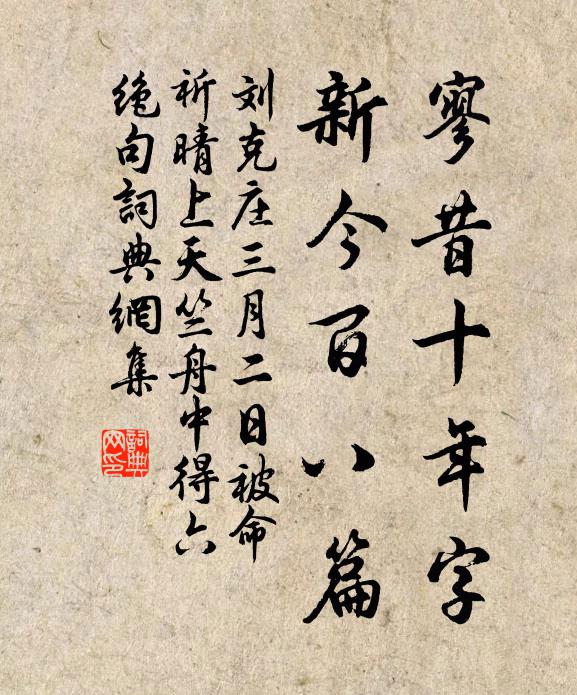 寥昔十年字
新今百八篇
刘克庄三月二日被命
祈晴上天竺舟中得六
绝句詞典網集
詞典
网印